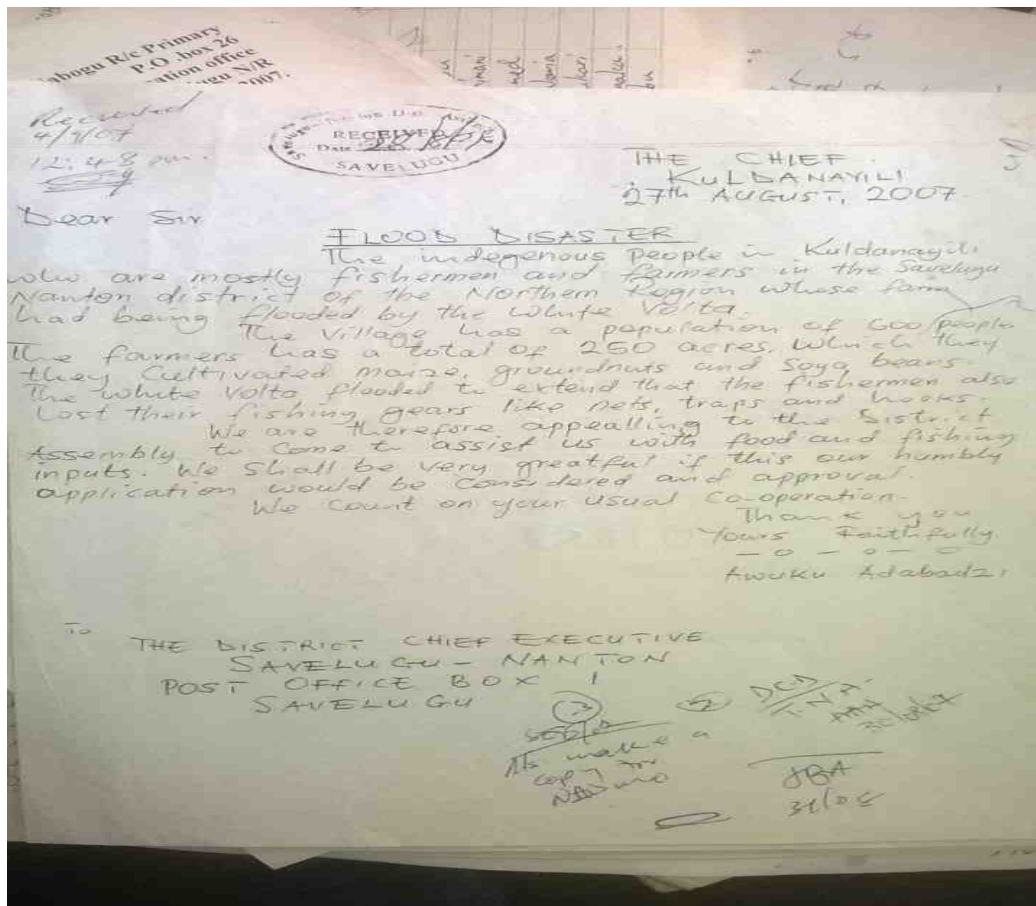 R/c Primary
P.O .box 26
ation office
N/R
2007.
Received
4/9/07
12:48 pm.
RECEIVED
Date
SAVELUGU
THE CHIEF
KULDANAYILI
27th AUGUST, 2007
Dear Sir
FLOOD DISASTER
The indegenous People in Kuldanayili
who are mostly fishermen and farmers in the Savelugu
Nanton district of the Northern Region whose farm
had being flooded by the White Volta.
The Village has a population of 600 people
The farmers has a total of 250 acres. Which they
they Cultivated maize, groundnuts and Soya beans.
The White Volta flooded to extend that the fishermen also
Lost their fishing gears like nets, traps and hooks.
We are therefore appealling to the District
Assembly to Come to assist us with food and fishing
inputs. We Shall be very greatful if this our humbly
application would be Considered and approval.
We Count on your usual Co-operation.
Thank you
Yours Faithfully
Awuku Adabadzi
To
THE DISTRICT CHIEF EXECUTIVE
SAVELUGU - NANTON
POST OFFICE BOX 1
SAVELUGU
make a
copy for
DCD
JBA
31/08